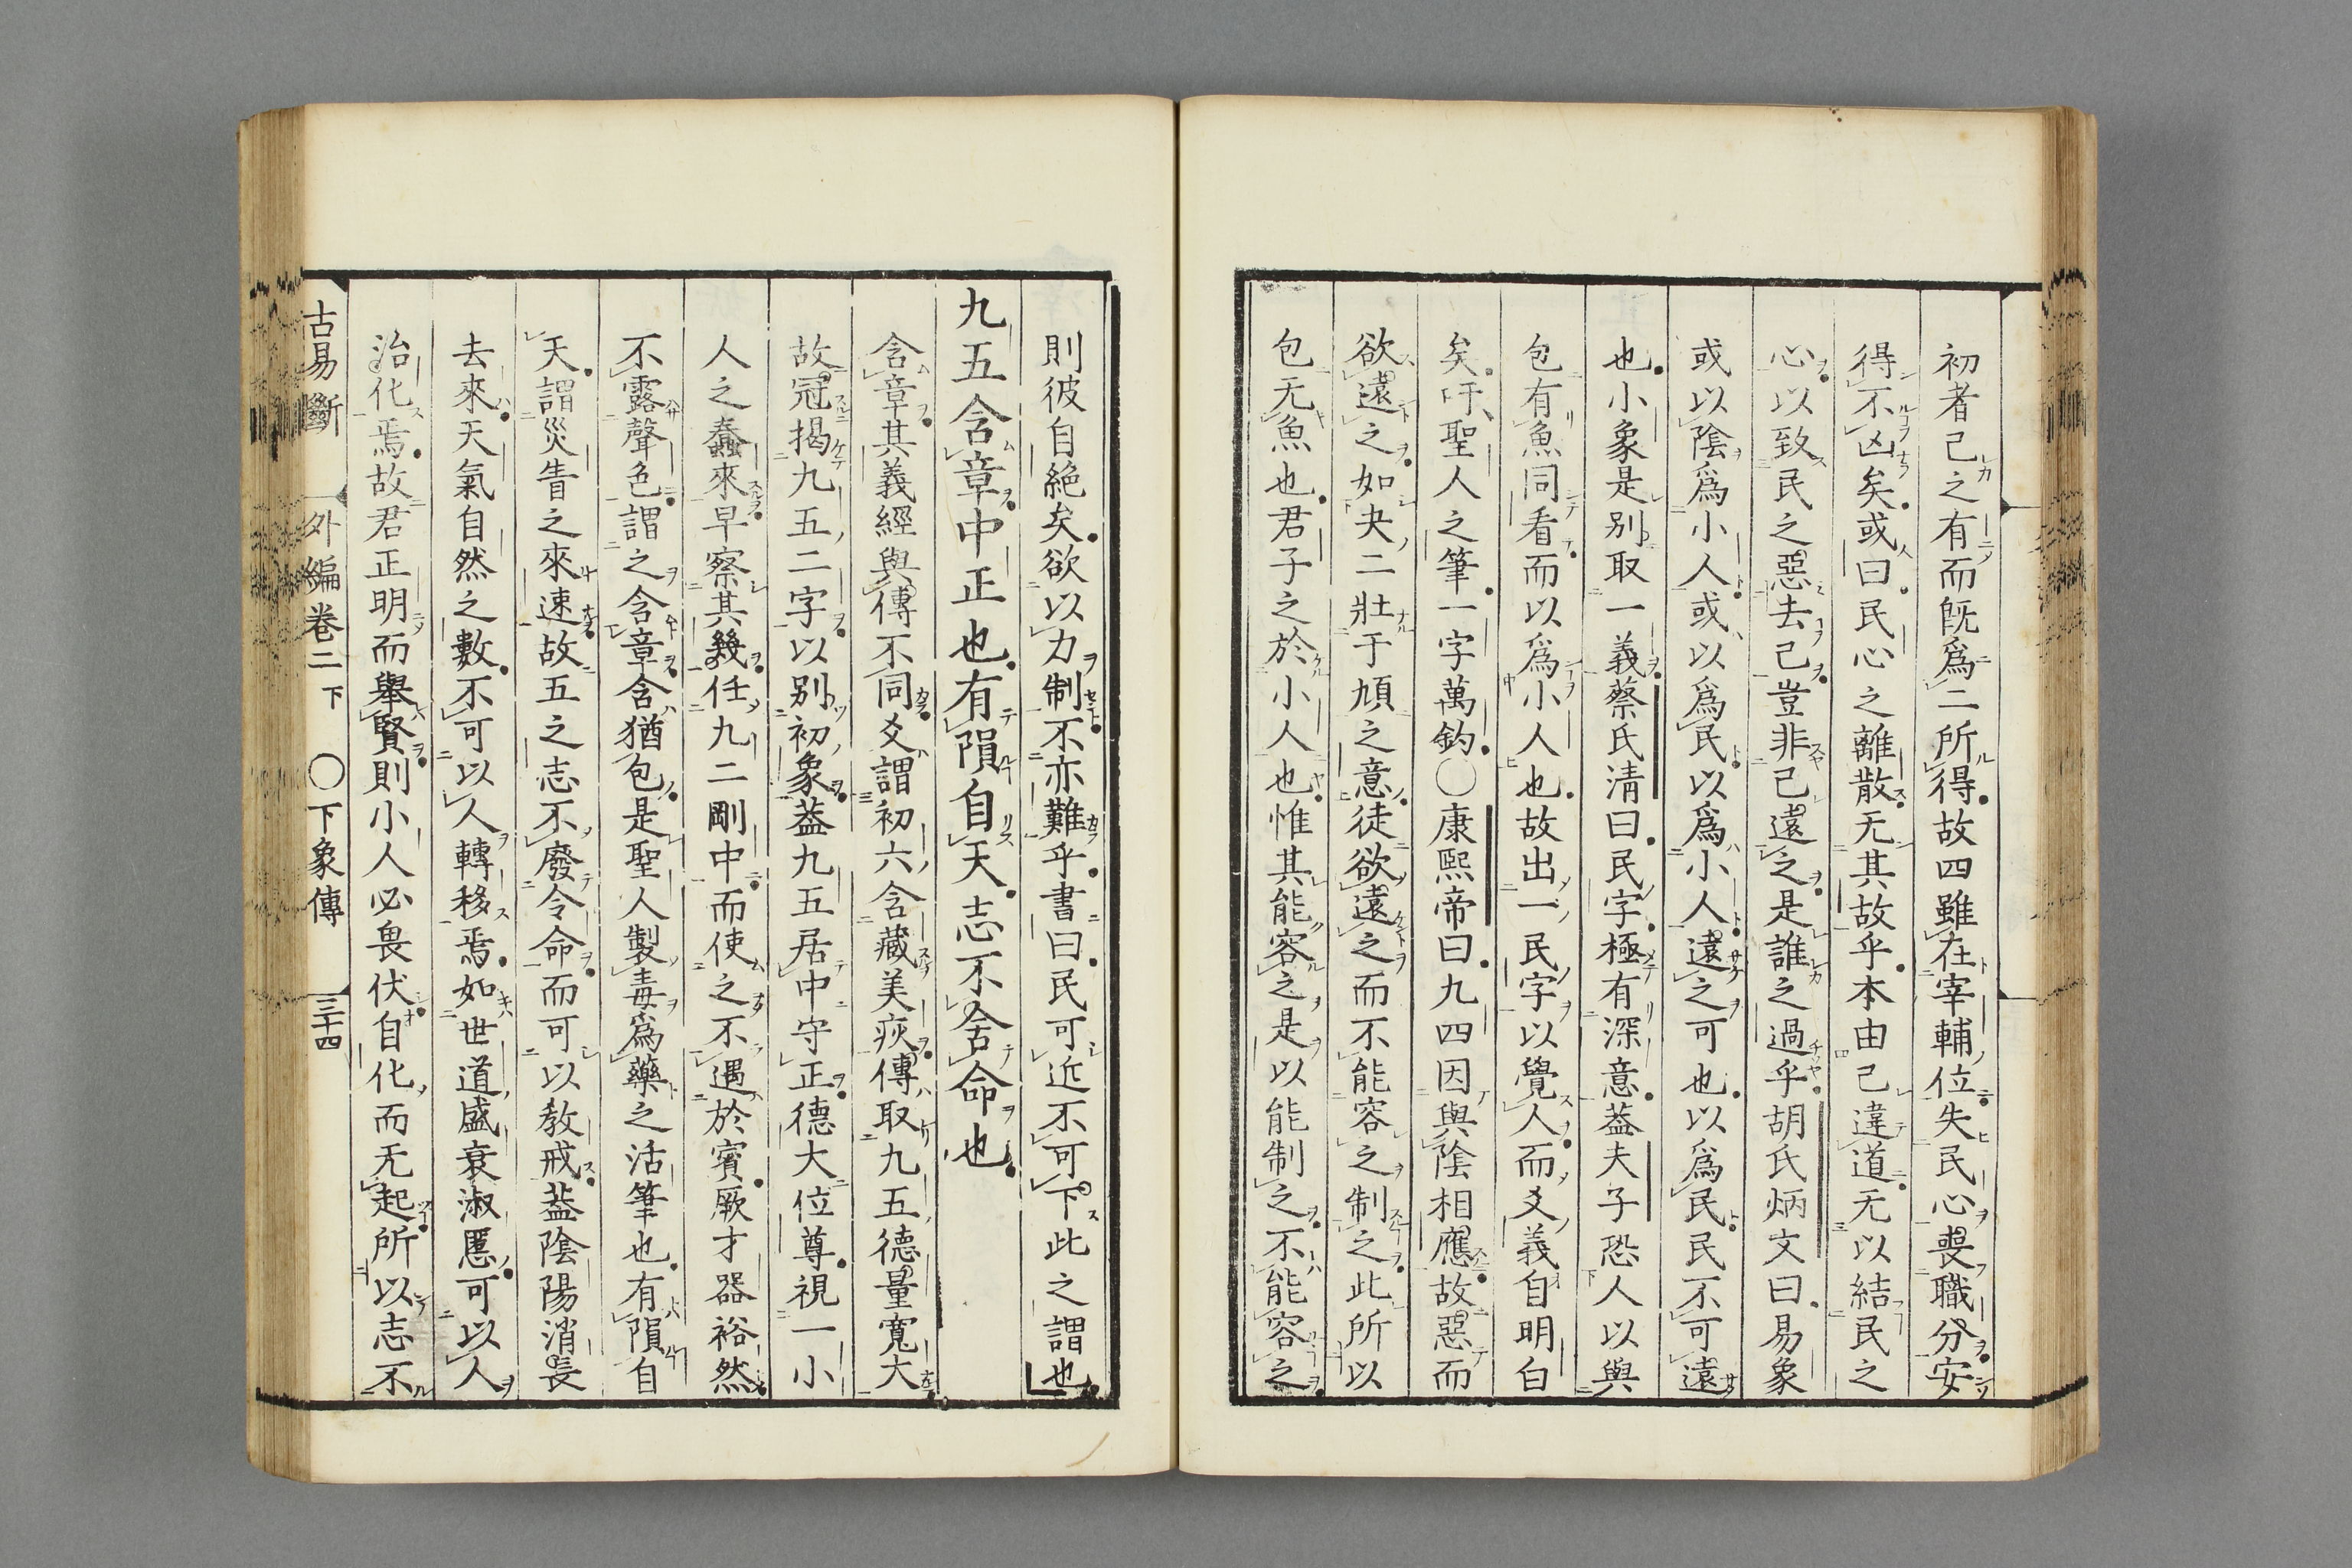 初者己之有而既爲二所得故四雖在宰輔位失民心喪職分安
得不凶矣或曰民心之離散无其故乎本由己違道无以結民之
心以致民之惡去己豈非己遠之是誰之過乎胡氏炳文曰易象
或以陰爲小人或以爲民以爲小人遠之可也以爲民民不可遠
也小象是別取一義蔡氏淸曰民字極有深意葢夫子恐人以與
包有魚同看而以爲小人也故出一民字以覺人而爻義自明白
矣吁聖人之筆一字萬鈞〇康熙帝曰九四因與陰相應故惡而
欲遠之如夬二壯于頄之意徒欲遠之而不能容之制之此所以
包无魚也君子之於小人也惟其能容之是以能制之不能容之
則彼自絕矣欲以力制不亦難乎書曰民可近不可下此之謂也
九五含章中正也有隕自天志不舍命也
含章其義經與傳不同爻謂初六含藏美疢傳取九五德量寬大
故冠揭九五二字以別初象葢九五居中守正德大位尊視一小
人之蠢來早察其幾任九二剛中而使之不遇於賓厥才器裕然
不露聲色謂之含章含猶包是聖人製毒爲藥之活筆也有隕自
天謂災眚之來速故五之志不廢令命而可以敎戒葢陰陽消長
去來天氣自然之數不可以人轉移焉如世道盛衰淑慝可以人
治化焉故君正明而舉賢則小人必畏伏自化而无起所以志不
古易斷 外編卷二下 〇下象傳 三十四